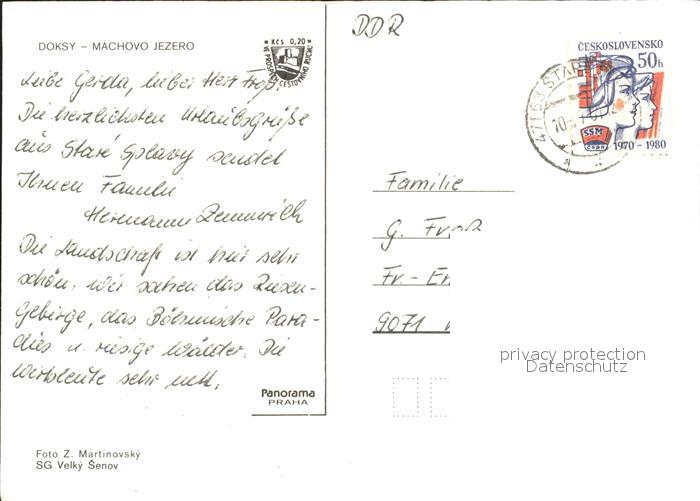 DOKSY – MÁCHOVO JEZERO
Kčs 0,20
VE PROSPĚCH CESTOVNÍHO RUCHU
Liebe Gerda, lieber Herr Froß.
Die herzlichsten Urlaubsgrüße
aus Staré Splavy sendet
Ihnen Familie
Hermann Zemmrich
Die Landschaft ist hier sehr
schön. Wir sahen das Riesen-
Gebirge, das Böhmische Para-
dies u. riesige Wälder. Die
Wirtsleute sehr nett.
Panorama
PRAHA
Foto Z. Martinovský
SG Velký Šenov
DDR
ČESKOSLOVENSKO
50h
SSM
1970 – 1980
471 63 STAR
Familie
G. Froß
Fr.-En
9071
privacy protection
Datenschutz